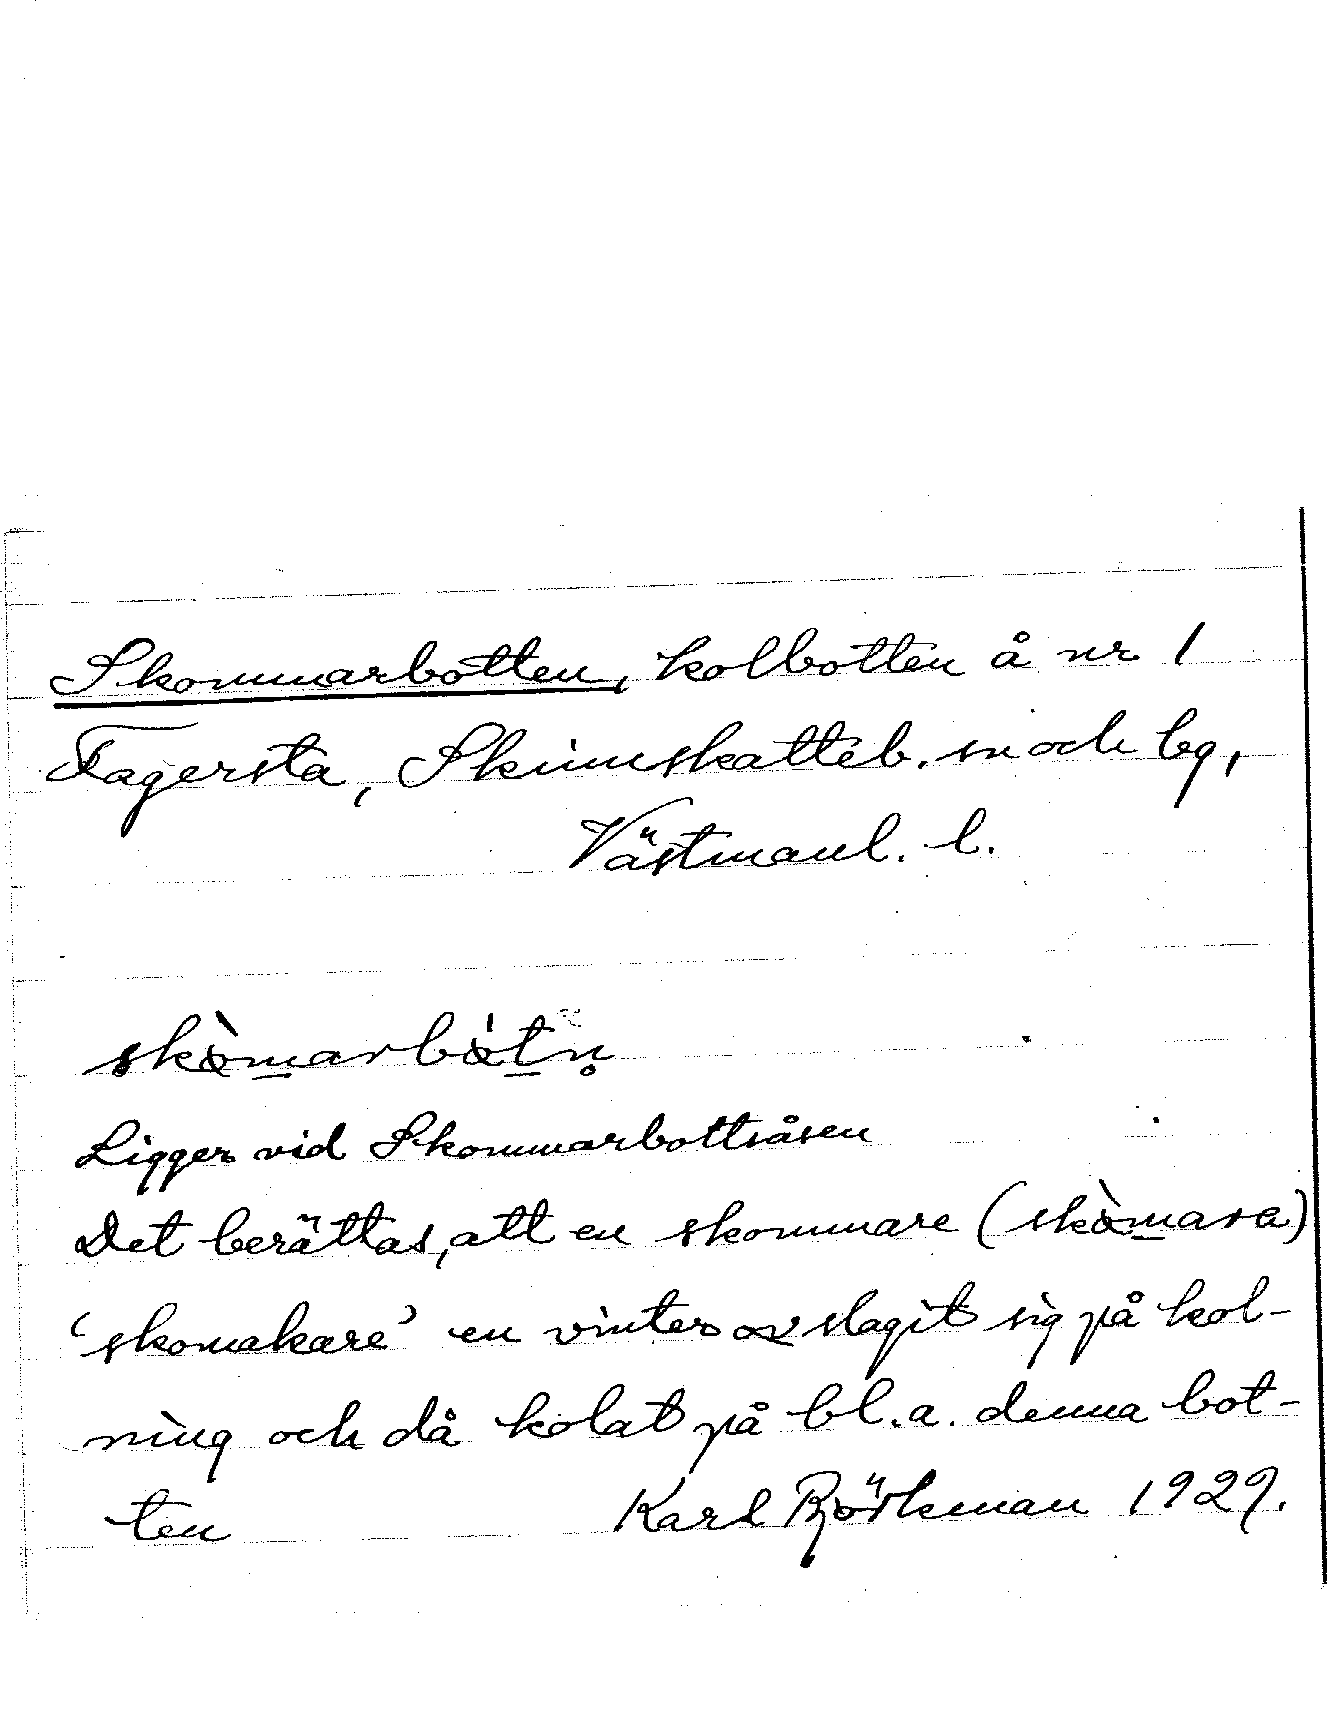 Skommarbotten, kolbotten å nr 1
Fagersta, Skinnskatteb. sn och bg,
Västmanl. l.
skòmarbòtn̥
Ligger vid Skommarbottsåsen
Det berättas, att en skommare (skòmara)
'skomakare' en vinter slagit sig på kol-
ning och då kolat på bl.a. denna bot-
ten Karl Björkman 1929.